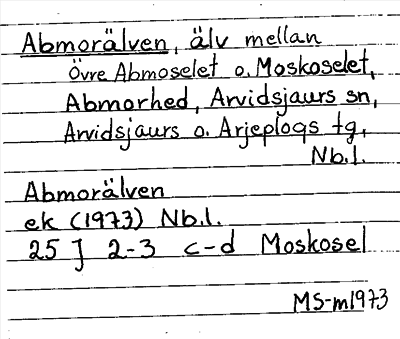 Abmorälven, älv mellan
Övre Abmoselet o. Moskoselet,
Abmorhed, Arvidsjaurs sn,
Arvidsjaurs o. Arjeplogs tg,
Nb.l.
Abmorälven
ek (1973) Nb.l.
25 J 2-3 c-d Moskosel
MS-m1973